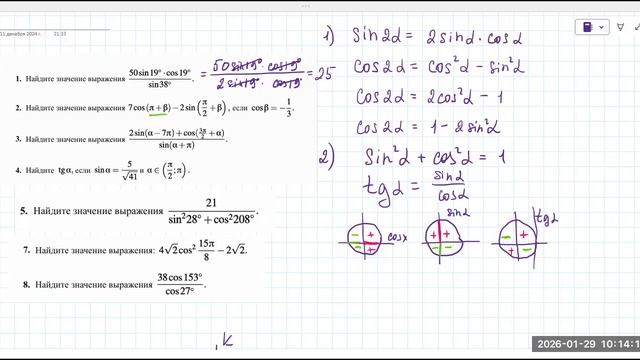 11 декабря 2024 г. 21:33
1. Найдите значение выражения 50 sin 19° · cos 19° / sin 38° . = 50 sin 19° · cos 19° / 2 sin 19° · cos 19° = 25
2. Найдите значение выражения 7 cos (π + β) − 2 sin (π/2 + β), если cos β = −1/3.
3. Найдите значение выражения 2 sin(α − 7π) + cos(3π/2 + α) / sin(α + π) .
4. Найдите tg α, если sin α = 5/√41 и α ∈ (π/2; π).
5. Найдите значение выражения 21 / sin²28° + cos²208° .
7. Найдите значение выражения: 4√2 cos² 15π/8 − 2√2.
8. Найдите значение выражения 38 cos 153° / cos 27° .
1) sin2α = 2sinα · cosα
cos2α = cos²α − sin²α
cos2α = 2cos²α − 1
cos2α = 1 − 2sin²α
2) sin²α + cos²α = 1
tgα = sinα / cosα
− + + cosx
sinα + + − −
tgα + − − +
2026-01-29 10:14:1